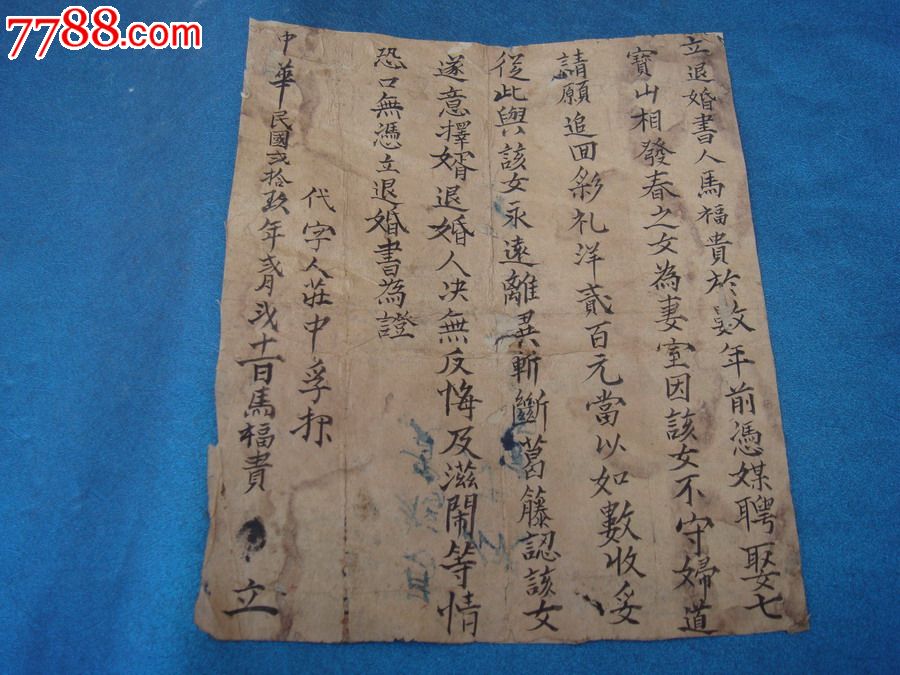 7788.com
立退婚書人馬福貴於数年前憑媒聘娶七
寶山相發春之女為妻室因該女不守婦道
請願追回彩礼洋貳百元當以如數收妥
從此與該女永遠離異斬斷葛籐認該女
遂意擇婿退婚人决無反悔及滋鬧等情
恐口無憑立退婚書為證
代字人莊中孚押
中華民國弍拾玖年弍月弍十一日馬福貴 立